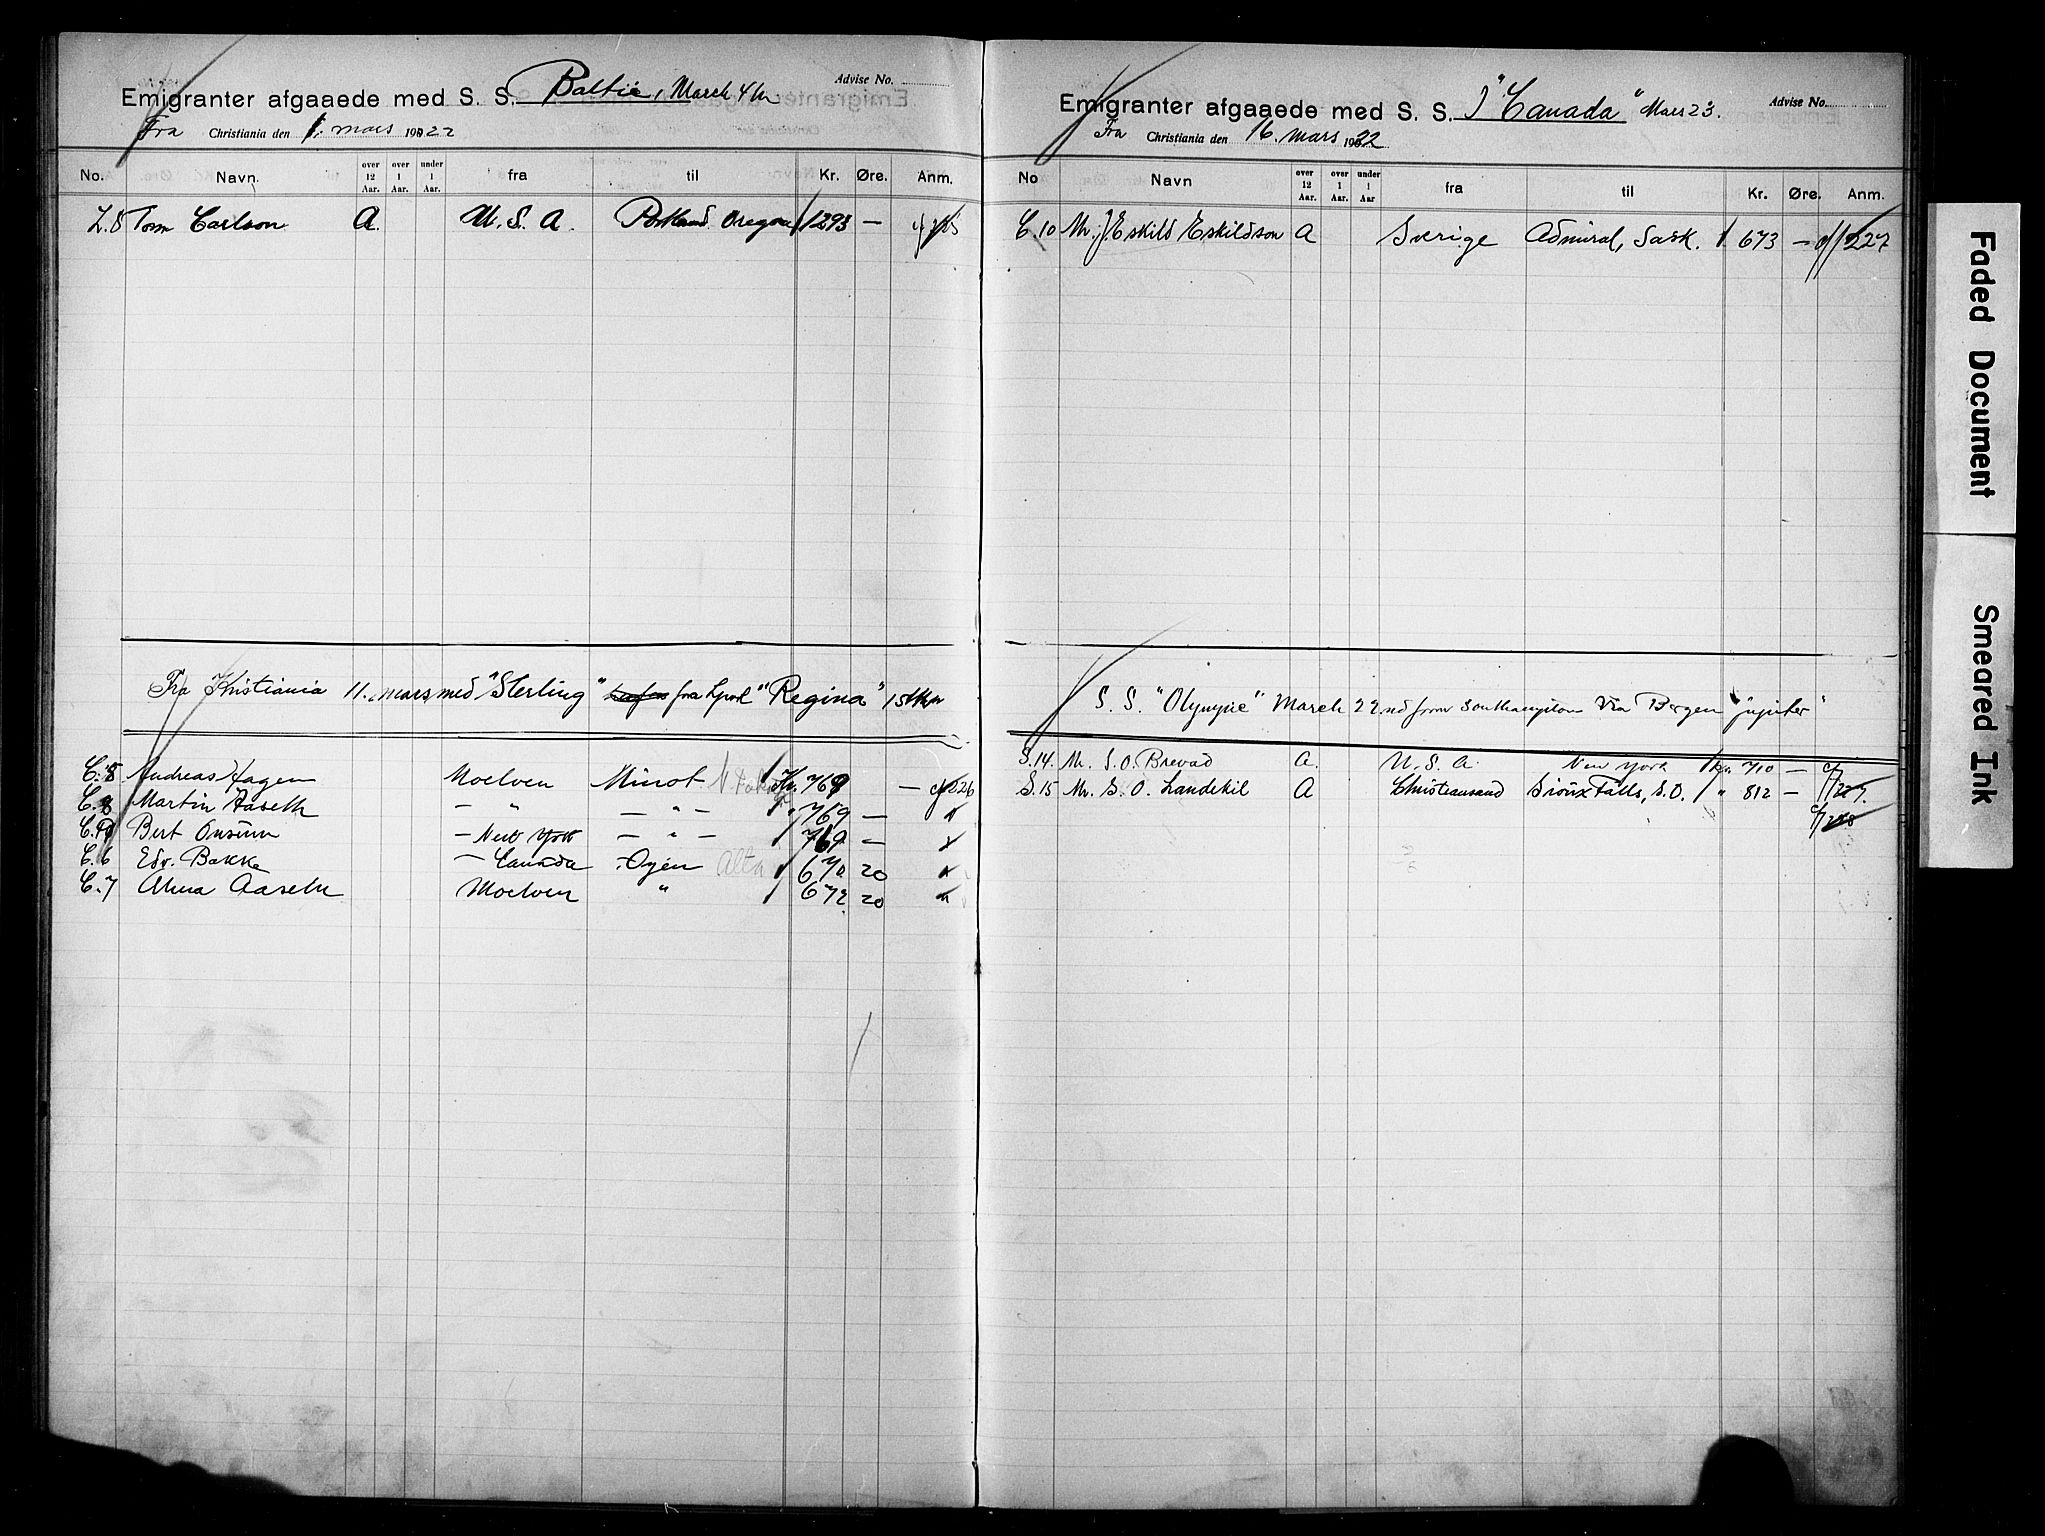 Emigranter afgaaede med S. S. Baltic, March 4th Advise No.
Fra Christiania den 1. mars 1922
No. Navn. over 12 Aar. over 1 Aar. under 1 Aar. fra til Kr. Øre. Anm.
Z.8 Tom Carlson A. U.S.A. Portland Oregon 1293 —
Fra Kristiania 11. mars med "Sterling" fra Lpool "Regina" 15th
C.8 Andreas Hagen Moelven Minot N Dak Kr. 769 — c/226
C. Martin Aaseth — " — — " — " 769 — "
C. Bert Onsum — New York — " — 769 —
C.6 Edv. Bakke — Canada Oyen Alta 670 20 "
C.7 Alma Aaseth Moelven " 672 20 "
Emigranter afgaaede med S. S. "Canada" Mars 23. Advise No.
Fra Christiania den 16. mars 1922
No Navn over 12 Aar. over 1 Aar. under 1 Aar fra til Kr. Øre. Anm.
C.10 Mr. Eskild Eskildson A Sverige Admiral, Sask. 673 — c/227
S. S. "Olympic" March 22nd from Southampton via Bergen "Jupiter"
S.14. Mr. S.O. Brevad A. U.S.A. New York Kr. 710 — c/
S.15 Mr. G. O. Landskil A Christiansand Sioux Falls, S.D. " 812 — 227.
c/228
Faded Document
Smeared Ink